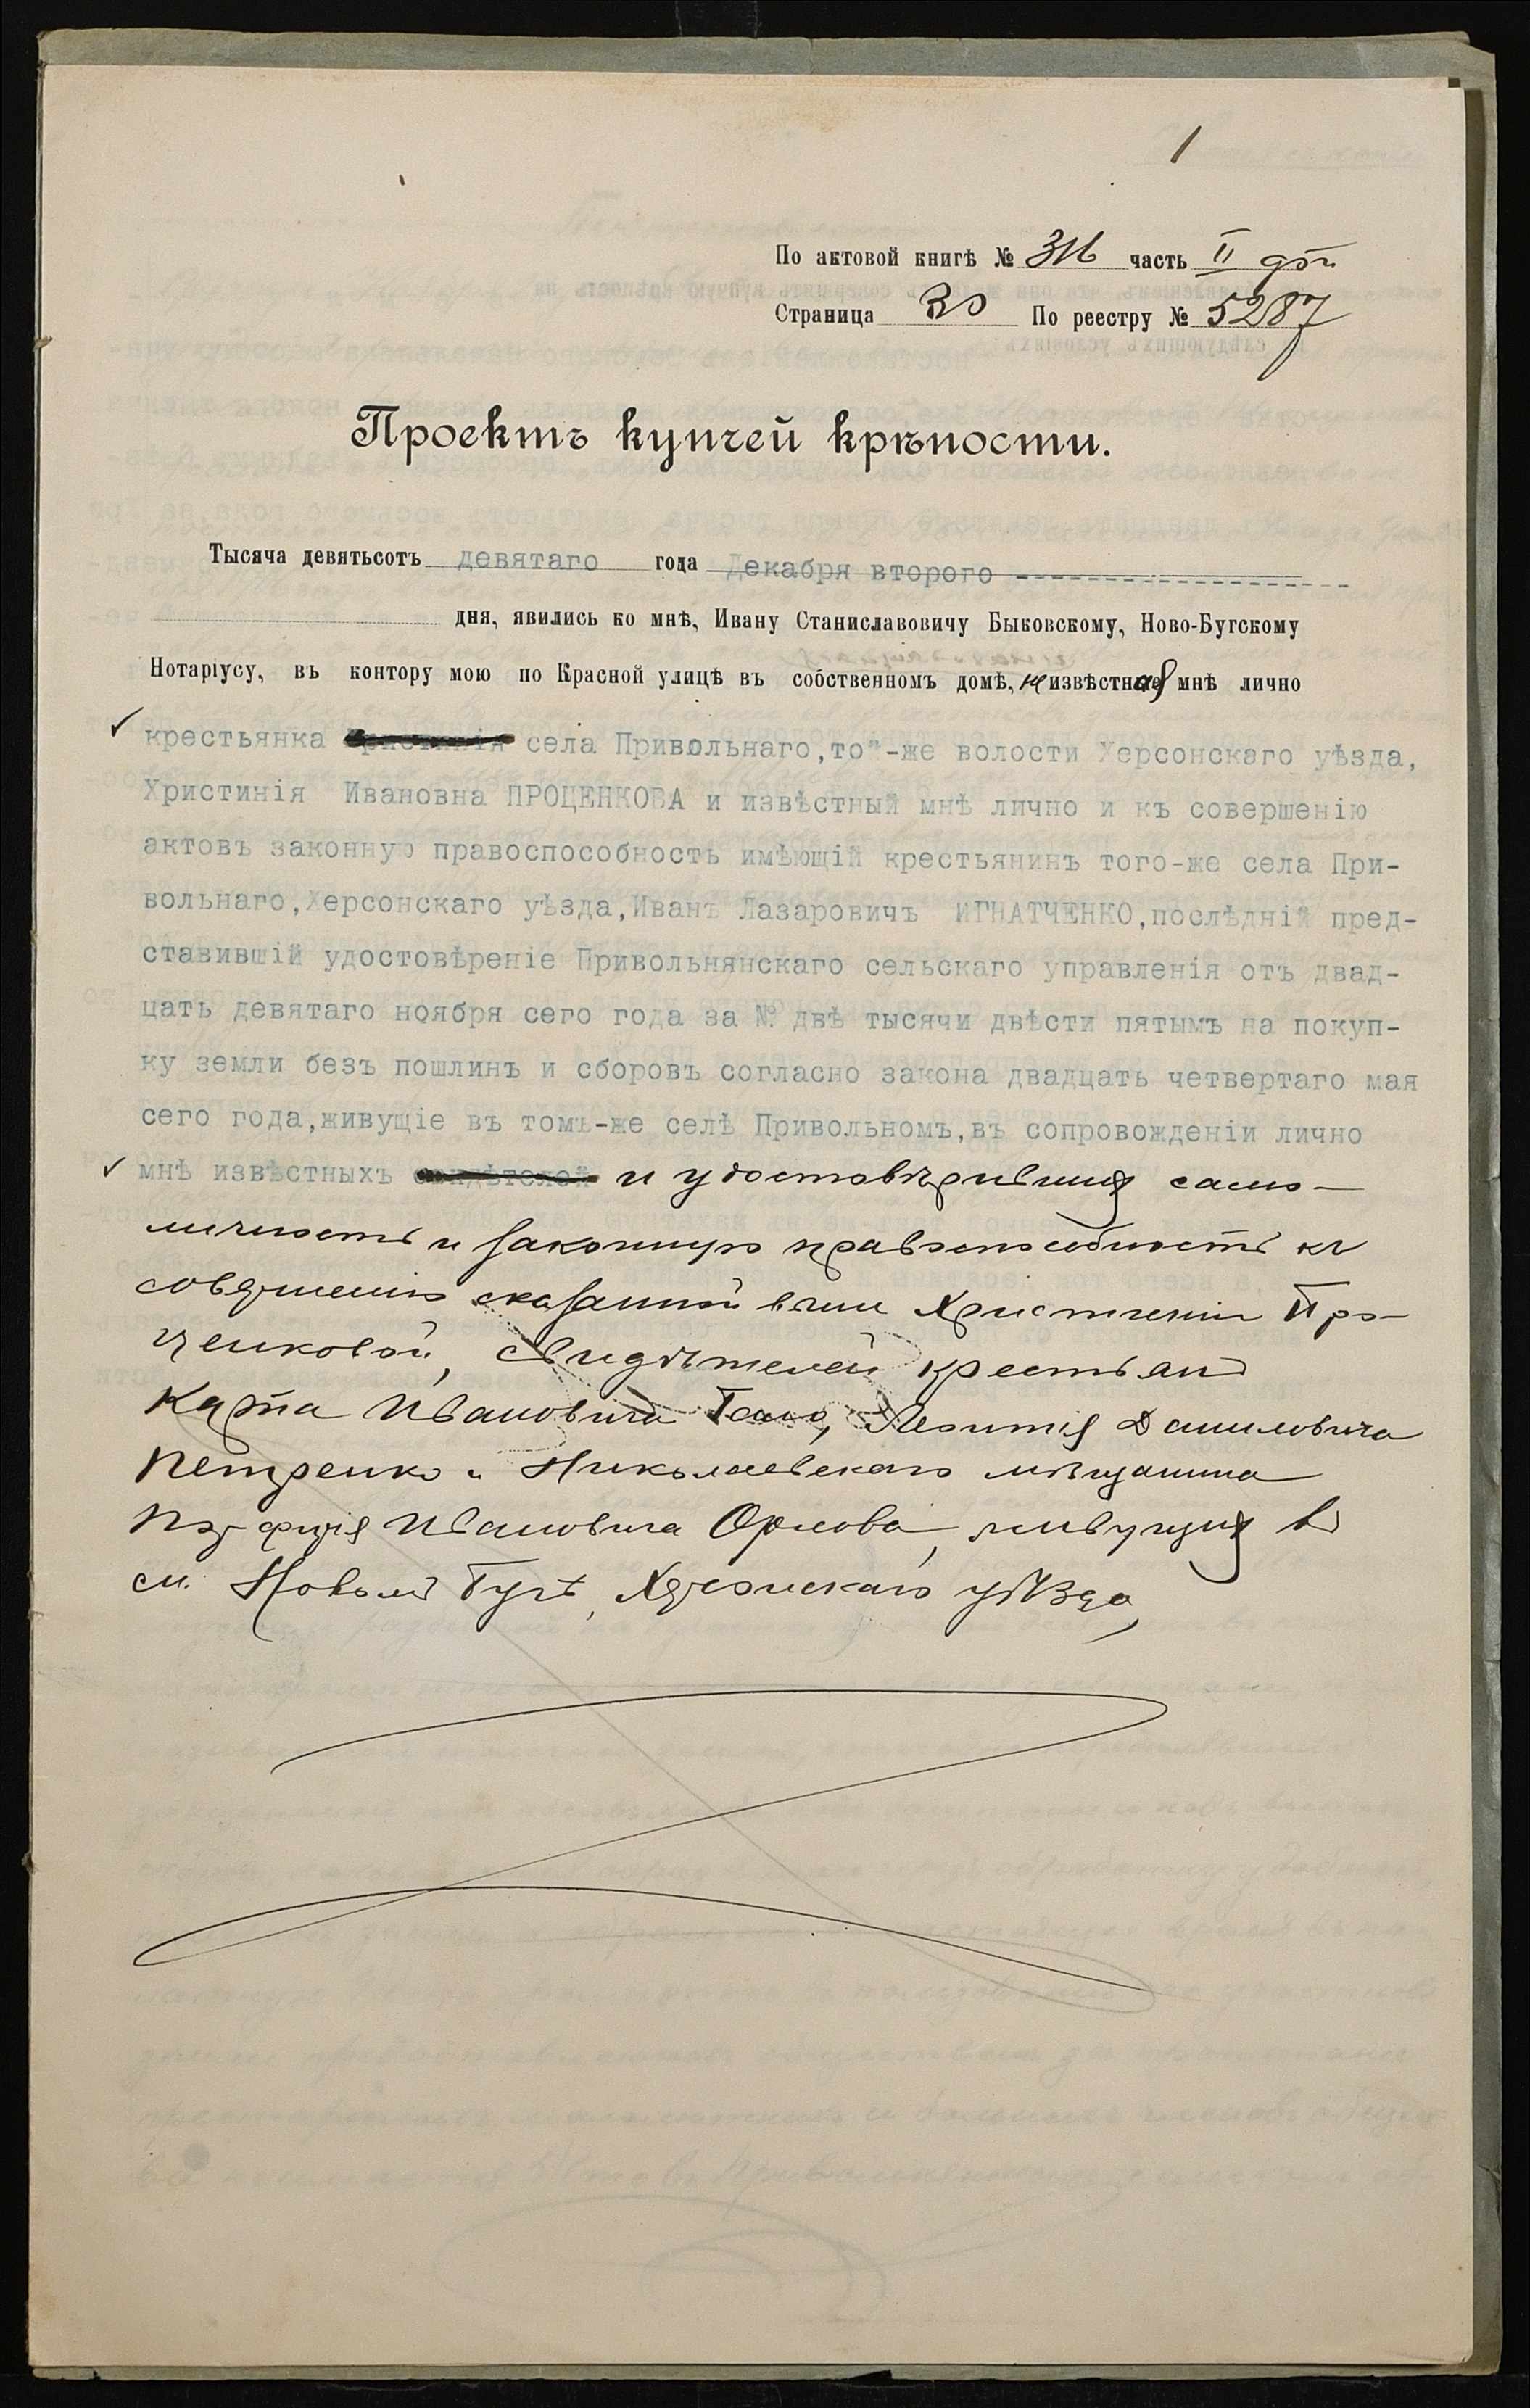 1
По актовой книгѣ № 316 часть II
Страница 30 По реестру № 5287
Проектъ купчей крѣпости.
Тысяча девятьсотъ девятаго года Декабря второго
дня, явились ко мнѣ, Ивану Станиславовичу Быковскому, Ново-Бугскому
Нотаріусу, въ контору мою по Красной улицѣ въ собственномъ домѣ, неизвѣстная мнѣ лично
крестьянка Христинія села Привольнаго,той-же волости Херсонскаго уѣзда,
Христинія Ивановна ПРОЦЕНКОВА и извѣстный мнѣ лично и къ совершенію
актовъ законную правоспособность имѣющій крестьянинъ того-же села При-
вольнаго,Херсонскаго уѣзда,Иванъ Лазаровичъ ИГНАТЧЕНКО,послѣдній пред-
ставившій удостовѣреніе Привольнянскаго сельскаго управленія отъ двад-
цать девятаго ноября сего года за № двѣ тысячи двѣсти пятымъ на покуп-
ку земли безъ пошлинъ и сборовъ согласно закона двадцать четвертаго мая
сего года,живущіе въ томъ-же селѣ Привольномъ,въ сопровожденіи лично
мнѣ извѣстныхъ свидѣтелей и удостовѣрившихъ само-
личность и законную правоспособность къ
совершенію сказанной Христиніи Про-
ценковой, свидѣтелей крестьянъ
Карпа Ивановича Леонтія Даниловича
Петренко и Николаевскаго мѣщанина
Порфирія Ивановича Орлова, живущихъ въ
м. Новомъ Бугѣ, Херсонскаго уѣзда,